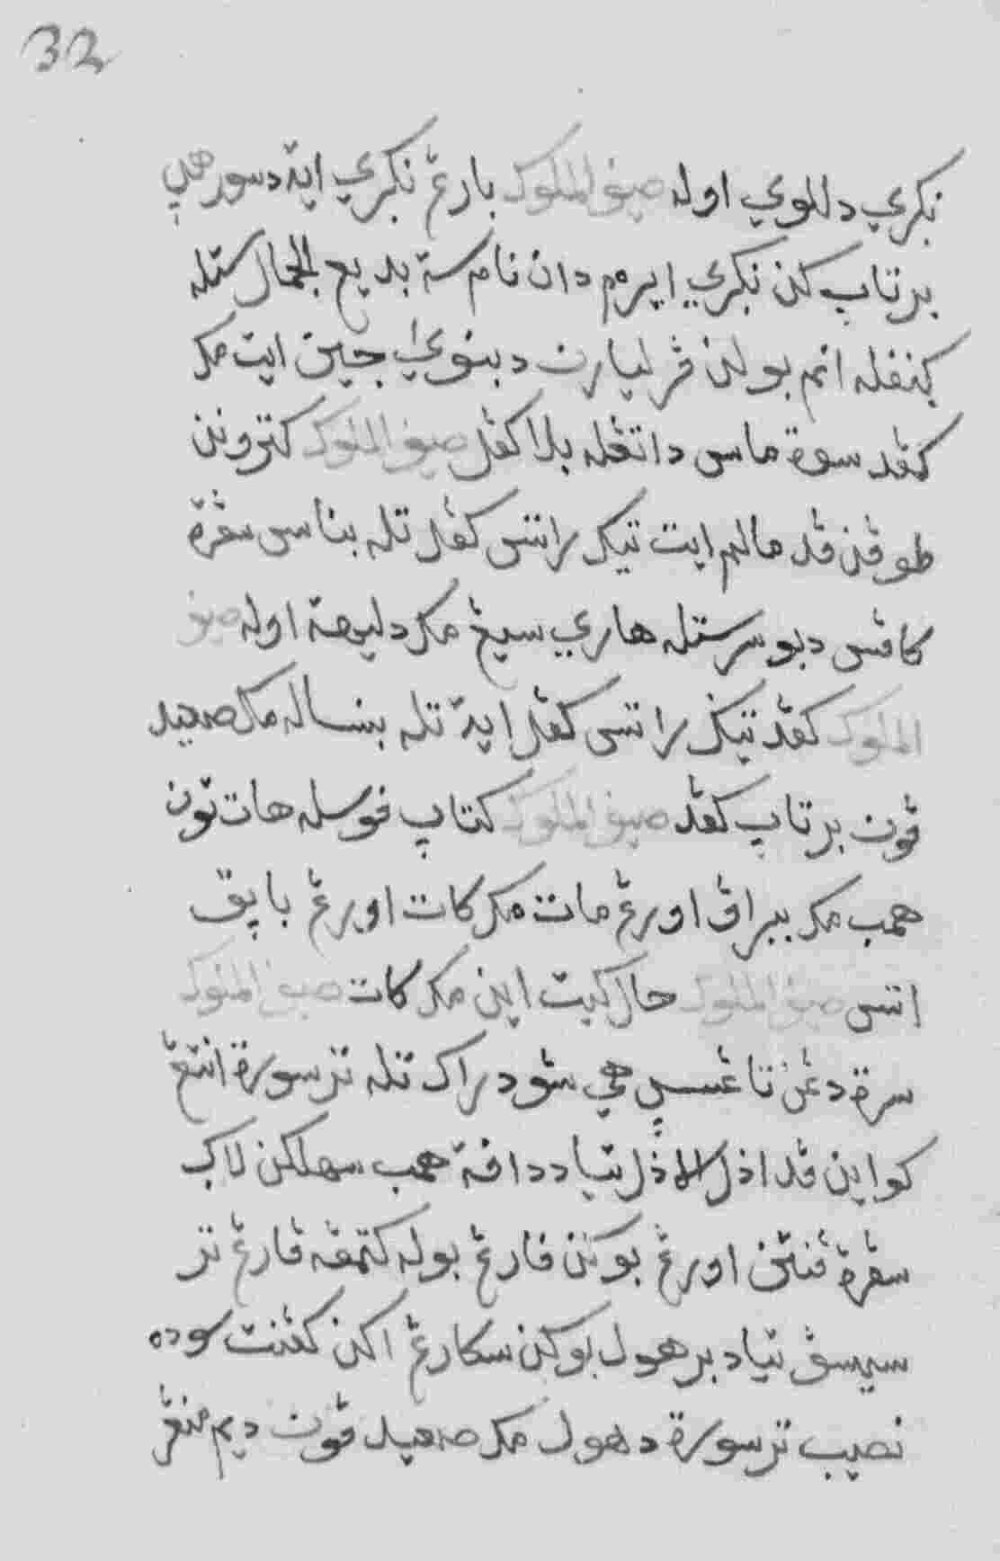 32
نكري دللوي اوله صيف الملوك بارغ نكري ايد دسور هڤي
برتاپ كن نكري ايرم دان نام سة بديع الجمال ستله
كنفله انم بولن ڤرليارن دبنوي چين ايت مك
كفد سوة ماس داتفله بلا كفد صيف الملوك كترونن
طوفن ڤد مالم ايت تيك راتس كفل تله بناس سفرة
كاڤس دبوسر ستله هاري سيغ مك دليهة اوله صيف
الملوك كفد تيک راتس كفل ايد تله بنساله مك صعيد
ڤون برتاپ كفد صيف الملوك كتاپ فوسله هات تون
همب مك ببراڤ اورغ مات مك كات اورغ باپق
اتس صيف الملوك حال كيت اين مك كات صيف الملوك
سرة دغن تاغسپ هي سودراك تله ترسورة انتغ
كو اين ڤد اذل الاذل تياد دافة همب سهلكن لاک
سفرة ڤنتن اورغ بوكن ڤارغ بوله كتمفه ڤارغ تر
سيسق تياد برهول بوكن سكارغ اكن كفنت سوده
نصيب ترسورة دهول مك صعيد ڤون ديم منغر